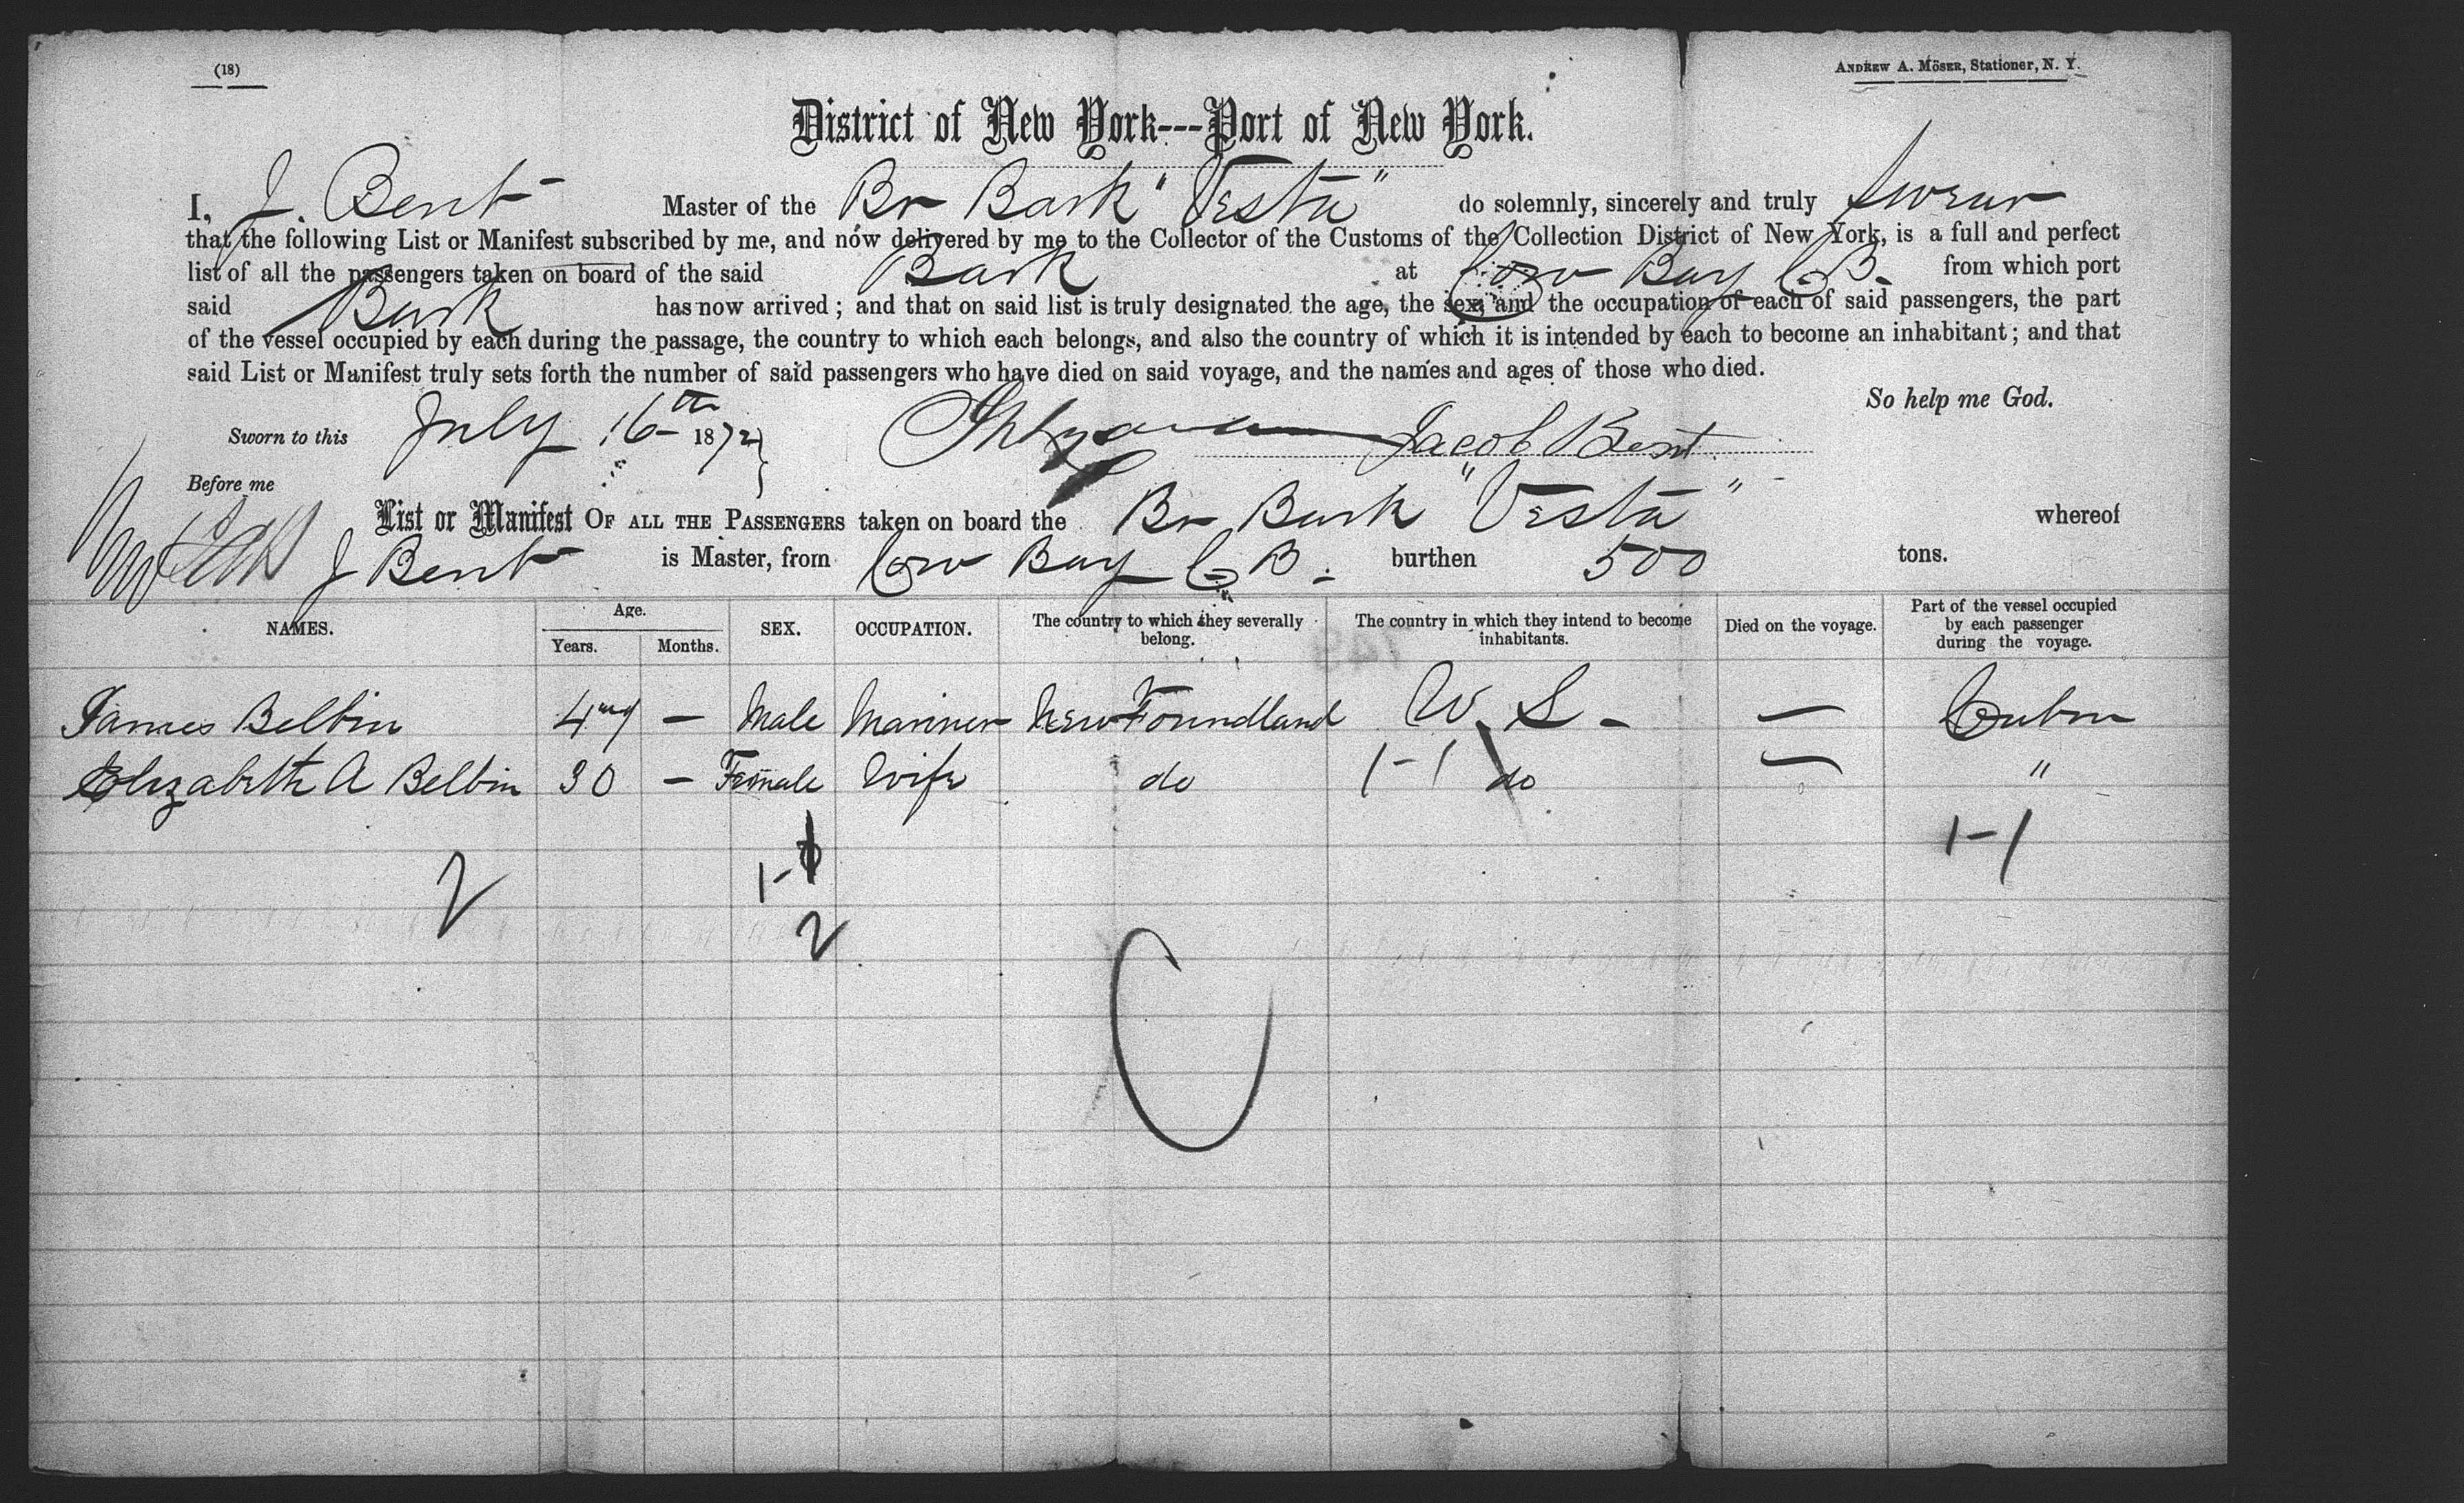 (18)
ANDREW A. MÖSER, Stationer, N. Y.
District of New York---Port of New York.
I, J. Bent Master of the Br Bark "Vesta" do solemnly, sincerely and truly swear
that the following List or Manifest subscribed by me, and now delivered by me to the Collector of the Customs of the Collection District of New York, is a full and perfect
list of all the passengers taken on board of the said Bark at Cow Bay C.B. from which port
said Bark has now arrived ; and that on said list is truly designated the age, the sex, and the occupation of each of said passengers, the part
of the vessel occupied by each during the passage, the country to which each belongs, and also the country of which it is intended by each to become an inhabitant ; and that
said List or Manifest truly sets forth the number of said passengers who have died on said voyage, and the names and ages of those who died.
So help me God.
Sworn to this July 16th 1872 Jacob Bent
Before me
List or Manifest OF ALL THE PASSENGERS taken on board the Br Bark "Vesta" whereof
J Bent is Master, from Cow Bay C B. burthen 500 tons.
NAMES. Age. Years. Months. SEX. OCCUPATION. The country to which they severally belong. The country in which they intend to become inhabitants. Died on the voyage. Part of the vessel occupied by each passenger during the voyage.
James Belbin — Male Mariner New Foundland — Cabin
Elizabeth A Belbin 30 — Female Wife do 1-1 do — "
1-1
2 1-1
2